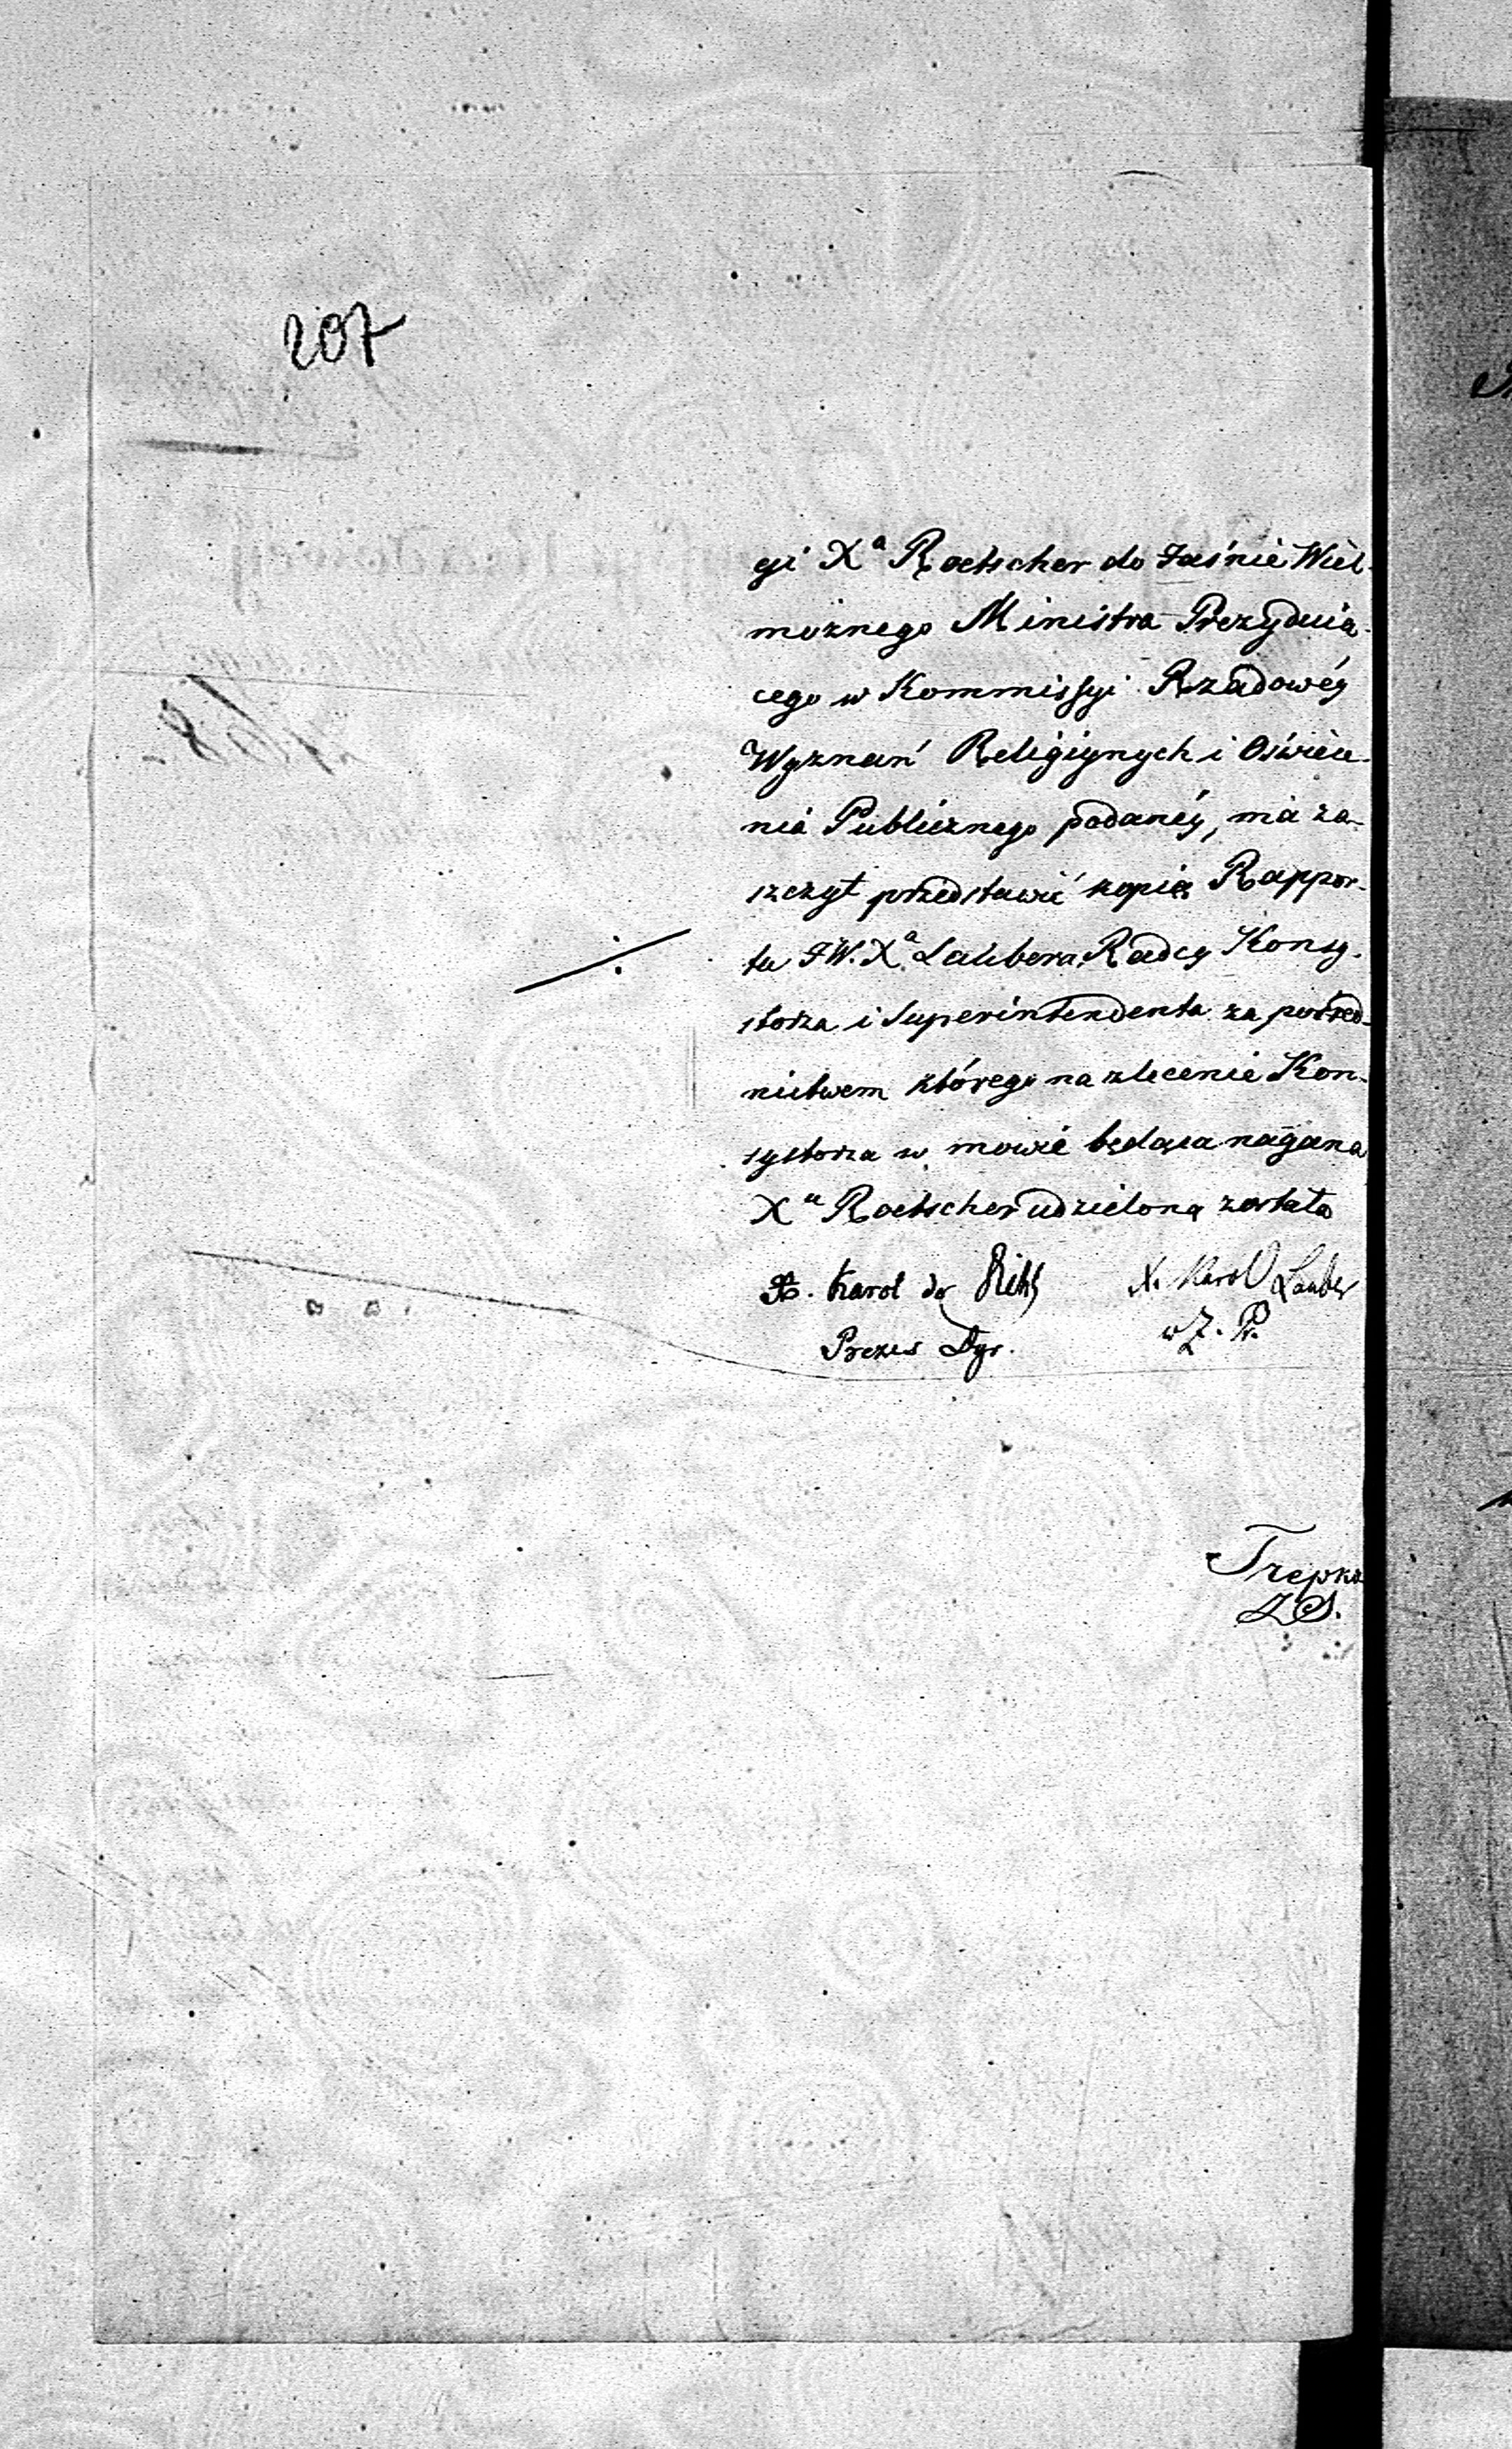 207
gi Xª Roetscher do Jaśnie Wiel-
możnego Ministra Prezyduią-
cego w Kommissyi Rządowéy
Wyznań Religiynych i Oświece-
nia Publicznego podanéy, ma za-
szczyt przedstawić kopią Rappor-
tu JW. Xª Laubera Radcy Konsy-
storza i Superintendenta za pośred-
nictwem którego na zlecenie Kon-
systorza w mowie będąca nagana
Xu Roetscher udzieloną została
X. Karol Lauber
Prezes Dyr.
w Z. P.
Trepka
Z S.